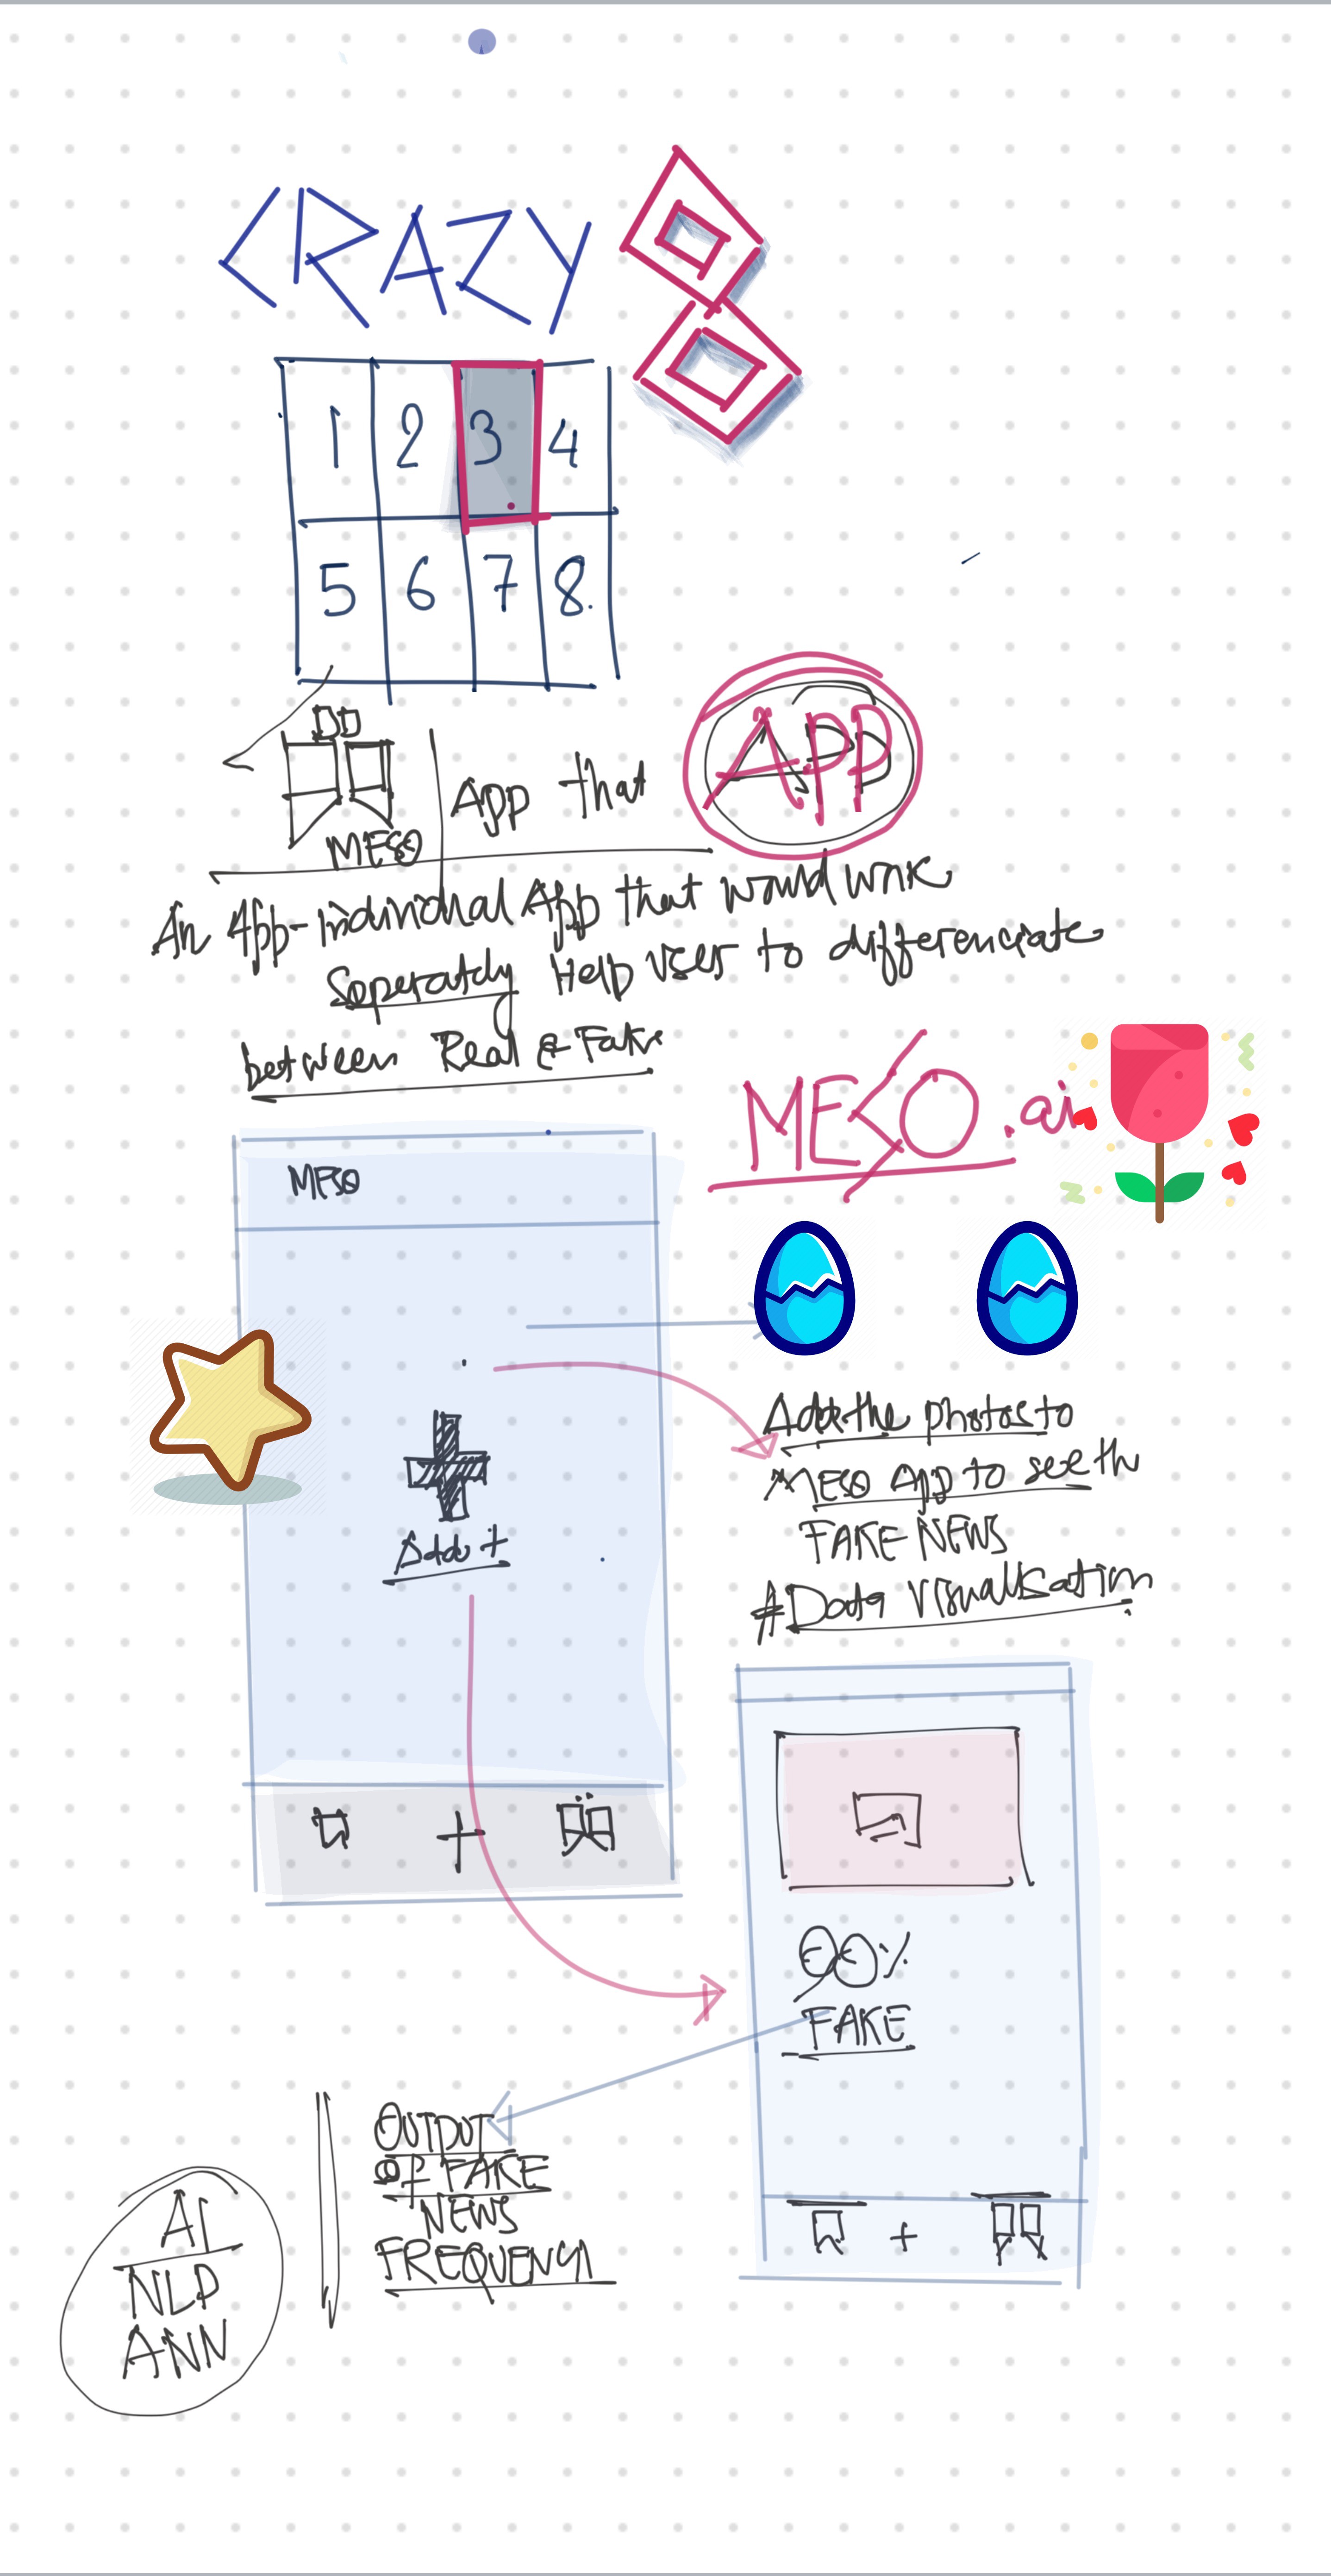 CRAZY 8
1 2 3 4
5 6 7 8.
MESO
App that
APP
An App-individual App that would work
Seperatdy Help user to differenciate
between Real & Fake
MESO.ai
MESO
Add +
Add the photos to
MESO App to see th
FAKE NEWS
#Data Visualisation
FAKE
OUTPUT
OF FAKE
NEWS
FREQUENCY
AI
NLP
ANN